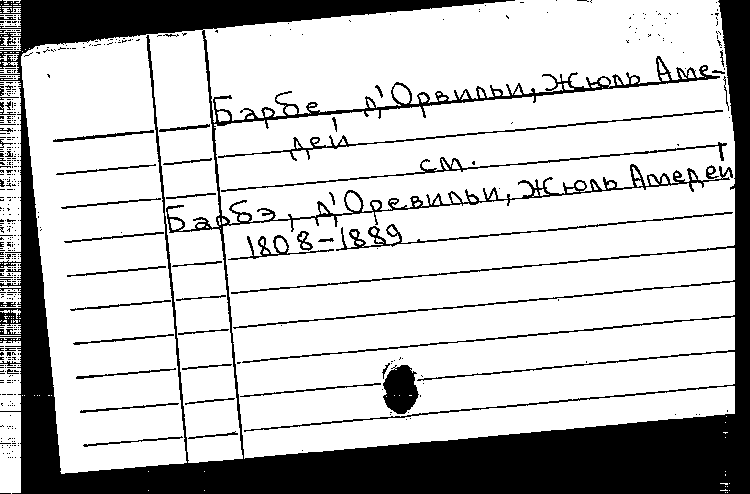 Барбе, д'Орвильи, Жюль Аме-
дей
см.
Барбэ, д'Оревильи, Жюль Амедей,
1808-1889.